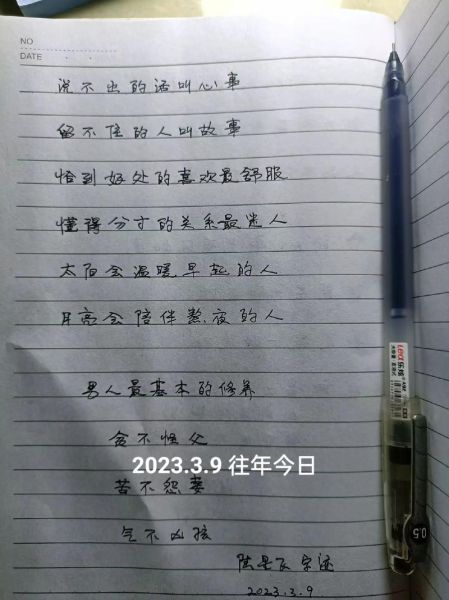 NO
DATE
说不出的话叫心事
留不住的人叫故事
恰到好处的喜欢最舒服
懂得分寸的关系最迷人
太阳会温暖早起的人
月亮会陪伴熬夜的人
男人最基本的修养
贪不怪父
2023.3.9 往年今日
苦不怨妻
气不凶孩
陈 字迹
2023.3.9
乐途
0.5